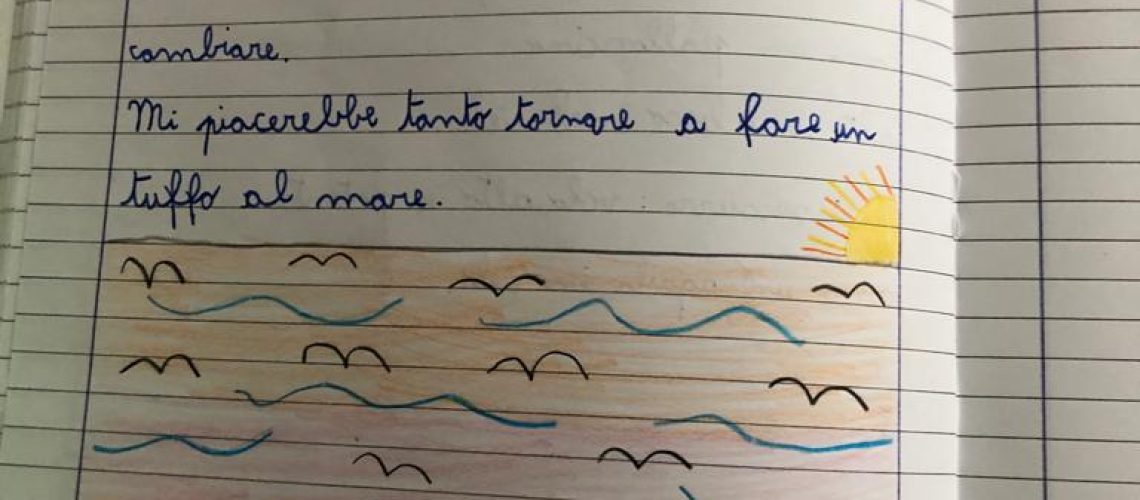 cambiare.
Mi piacerebbe tanto tornare a fare un
tuffo al mare.